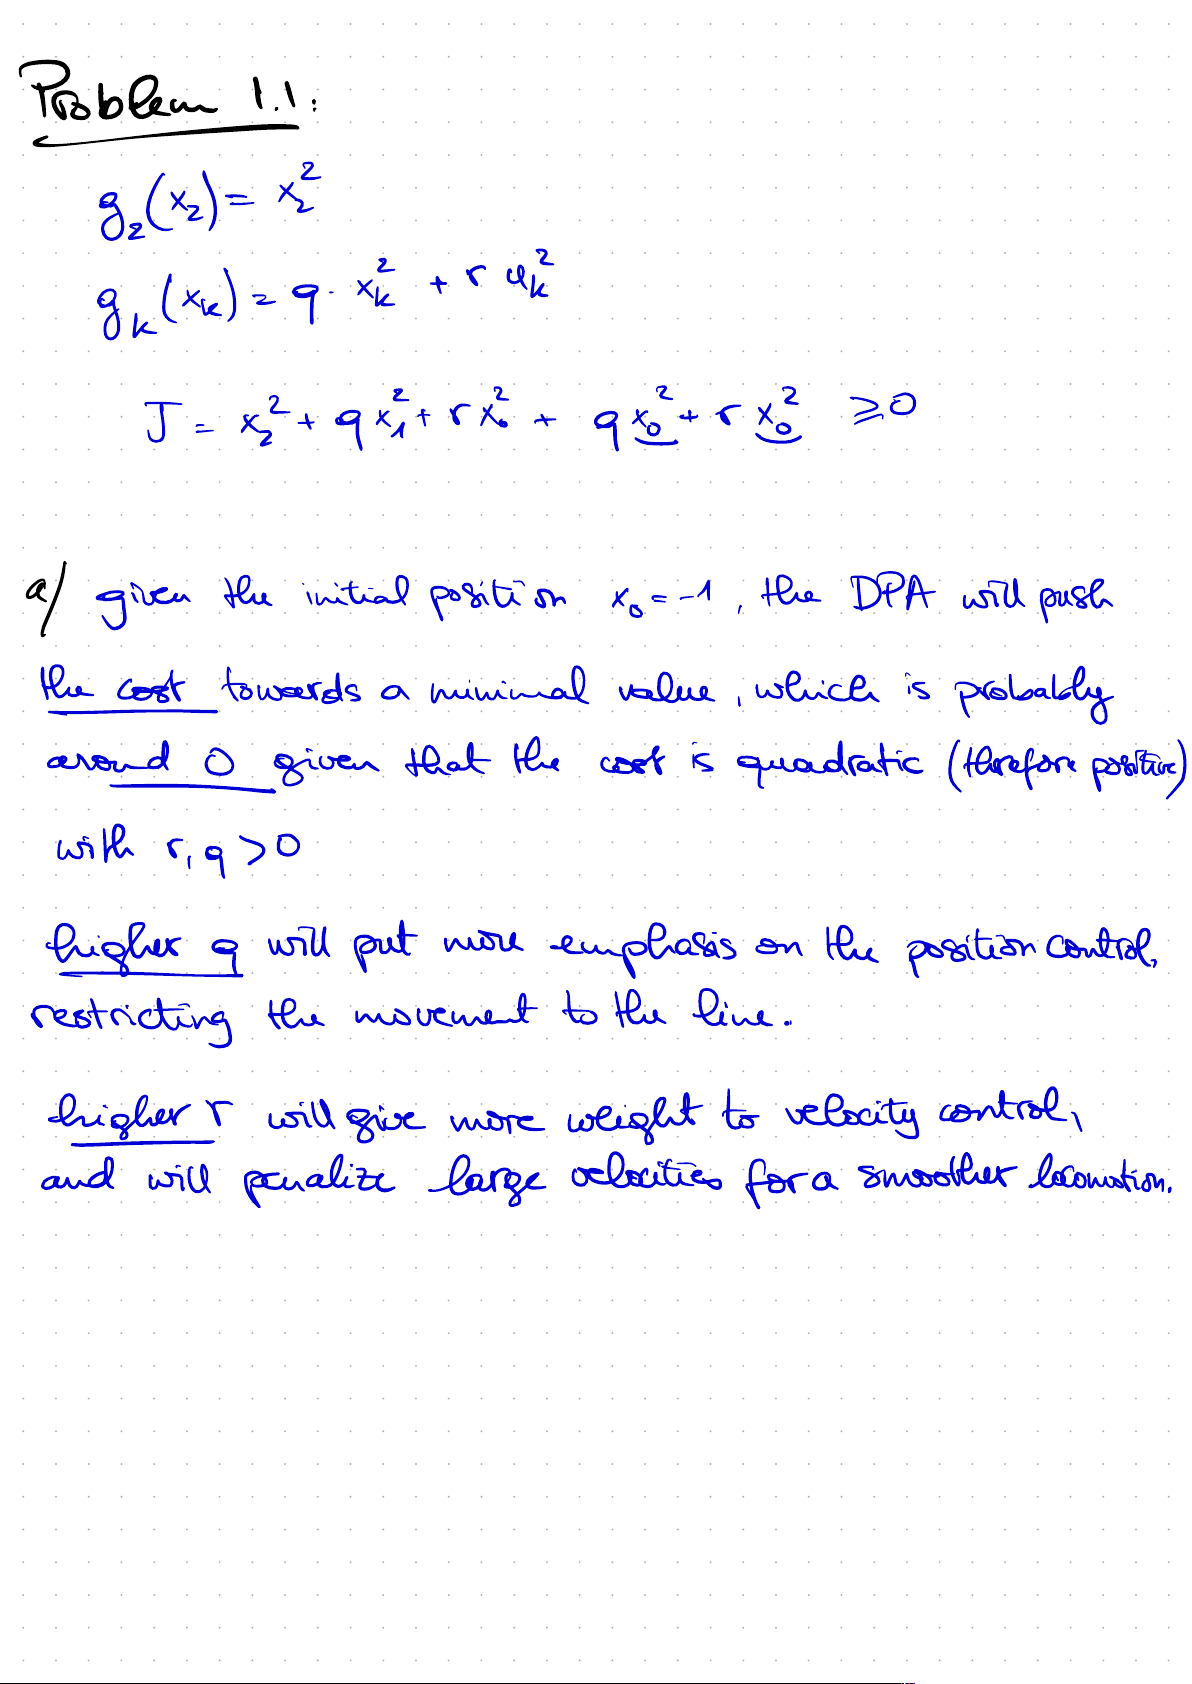 Problem 1.1:
g₂(x₂) = x₂²
gₖ(xₖ) = q · xₖ² + r uₖ²
J = x₂² + q x₁² + r x₀² + q x₀² + r x₀² ≥ 0
a/ given the initial position x₀ = -1, the DPA will push
the cost towards a minimal value, which is probably
around 0 given that the cost is quadratic (therefore positive)
with r, q > 0
higher q will put more emphasis on the position control,
restricting the movement to the line.
higher r will give more weight to velocity control,
and will penalize large velocities for a smoother locomotion.